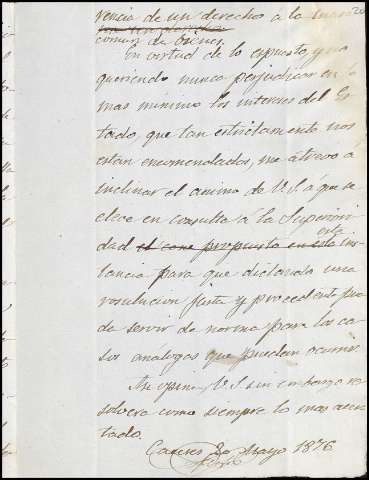 vencia de un derecho á la masa 20
comun de bienes.
En virtud de lo espuesto, y no
queriendo nunca perjudicar en lo
mas minimo los intereses del Es-
tado, que tan estrictamente nos
estan encomendados, me atrevo á
inclinar el animo de V.S. á que se
eleve en consulta á la Superiori-
dad el caso propuesto en esta esta ins-
tancia para que dictando una
resolucion justa y procedente pue-
da servir de norma para los ca-
sos análogos que puedan ocurrir.
Asi opina, V.S. sin embargo re-
solverá como siempre lo mas acer-
tado.
Caceres 20 Mayo 1876